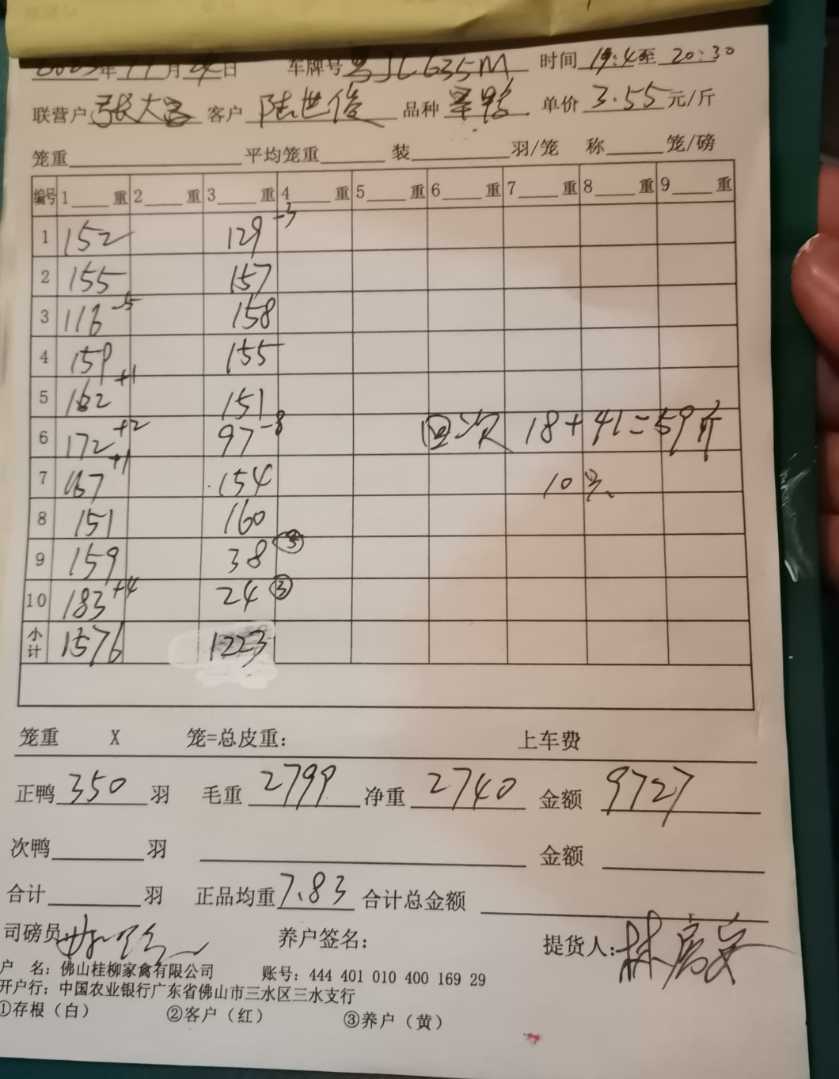 年11月24日 车牌号 粤JL635M 时间 19:4至 20:30
联营户 张大 客户 陆世俊 品种 单价 3.55 元/斤
笼重 平均笼重 装 羽/笼 称 笼/磅
编号 1 重 2 重 3 重 4 重 5 重 6 重 7 重 8 重 9 重
1 152 129 -3
2 155 157
3 116 -5 158
4 159 155
5 162 +1 151
6 172 +2 97 -8 回次 18+41=59斤
7 167 +1 154 10只
8 151 160
9 159 38 ③
10 183 +4 24 ③
小计 1576 1223
笼重 X 笼=总皮重: 上车费
正鸭 350 羽 毛重 2799 净重 2740 金额 9727
次鸭 羽 金额
合计 羽 正品均重 7.83 合计总金额
司磅员 养户签名: 提货人: 林
户 名: 佛山桂柳家禽有限公司 账号: 444 401 010 400 169 29
开户行: 中国农业银行广东省佛山市三水区三水支行
①存根（白） ②客户（红） ③养户（黄）